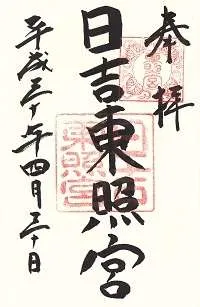 奉拝
日吉東照宮
平成三十年四月三十日
日吉
東照宮